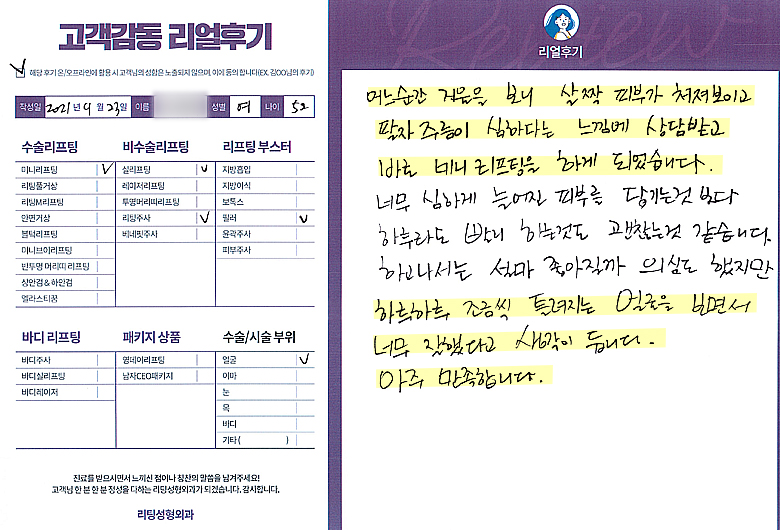 고객감동 리얼후기
해당 후기 온/오프라인에 활용 시 고객님의 성함은 노출되지 않으며, 이에 동의 합니다(EX. 김OO님의 후기)
작성일 2021년 9월 23일 이름 성별 여 나이 52
수술리프팅 비수술리프팅 리프팅 부스터
미니리프팅 ✓ 실리프팅 ✓ 지방흡입
리팅풀거상 레이저리프팅 지방이식
리팅M리프팅 투영머리띠리프팅 보톡스
안면거상 리팅주사 ✓ 필러 ✓
블럭리프팅 비네핏주사 윤곽주사
미니브이리프팅 피부주사
반투명 머리띠 리프팅
상안검 & 하안검
엘라스티꿈
바디 리프팅 패키지 상품 수술/시술 부위
바디주사 원데이리프팅 얼굴 ✓
바디실리프팅 남자CEO패키지 이마
바디레이저 눈
목
바디
기타( )
진료를 받으시면서 느끼신 점이나 칭찬의 말씀을 남겨주세요!
고객님 한 분 한 분 정성을 다하는 리팅성형외과가 되겠습니다. 감사합니다.
리팅성형외과
Review
리얼후기
어느순간 거울을 보니 살짝 피부가 쳐져보이고
팔자 주름이 심하다는 느낌에 상담받고
바로 미니 리프팅을 하게 되었습니다.
너무 심하게 늘어진 피부를 당기는것 보다
하루라도 빨리 하는것도 괜찮은것 같습니다.
하고나서는 설마 좋아질까 의심도 했지만
하루하루 조금씩 틀려지는 얼굴을 보면서
너무 잘했다고 생각이 듭니다.
아주 만족합니다.